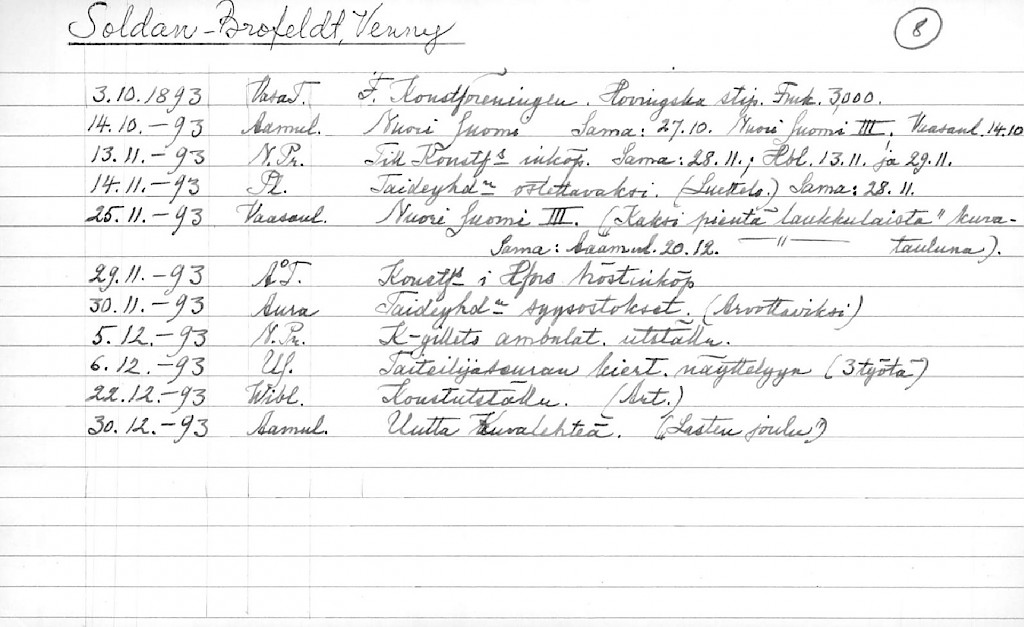 Soldan-Brofeldt, Venny 8
3.10.1893 VasaT. F. Konstföreningen. Hovingska stip. Fmk. 3,000.
14.10.-93 Aamul. Nuori Suomi Sama: 27.10. Nuori Suomi III. Vaasaul. 14.10
13.11.-93 N.Pr. Till Konstfs inköp. Sama: 28.11.; Hbl. 13.11. ja 29.11.
14.11.-93 Pl. Taideyhdn ostettavaksi. (Luettelo.) Sama: 28.11.
25.11.-93 Vaasaul. Nuori Suomi III. („Kaksi pientä laukkulaista" kuva-
Sama: Aamul. 20.12. —"— tauluna).
29.11.-93 ÅT. Konstfs i Hfors höstinköp
30.11.-93 Aura Taideyhdn syysostokset. (Arvottaviksi)
5.12.-93 N.Pr. K-gillets ambulat. utställn.
6.12.-93 Us. Taiteilijaseuran kiert. näyttelyyn (3 työtä)
22.12.-93 Wibl. Konstutställn. (Art.)
30.12.-93 Aamul. Uutta Kuvalehteä. („Lasten joulu")